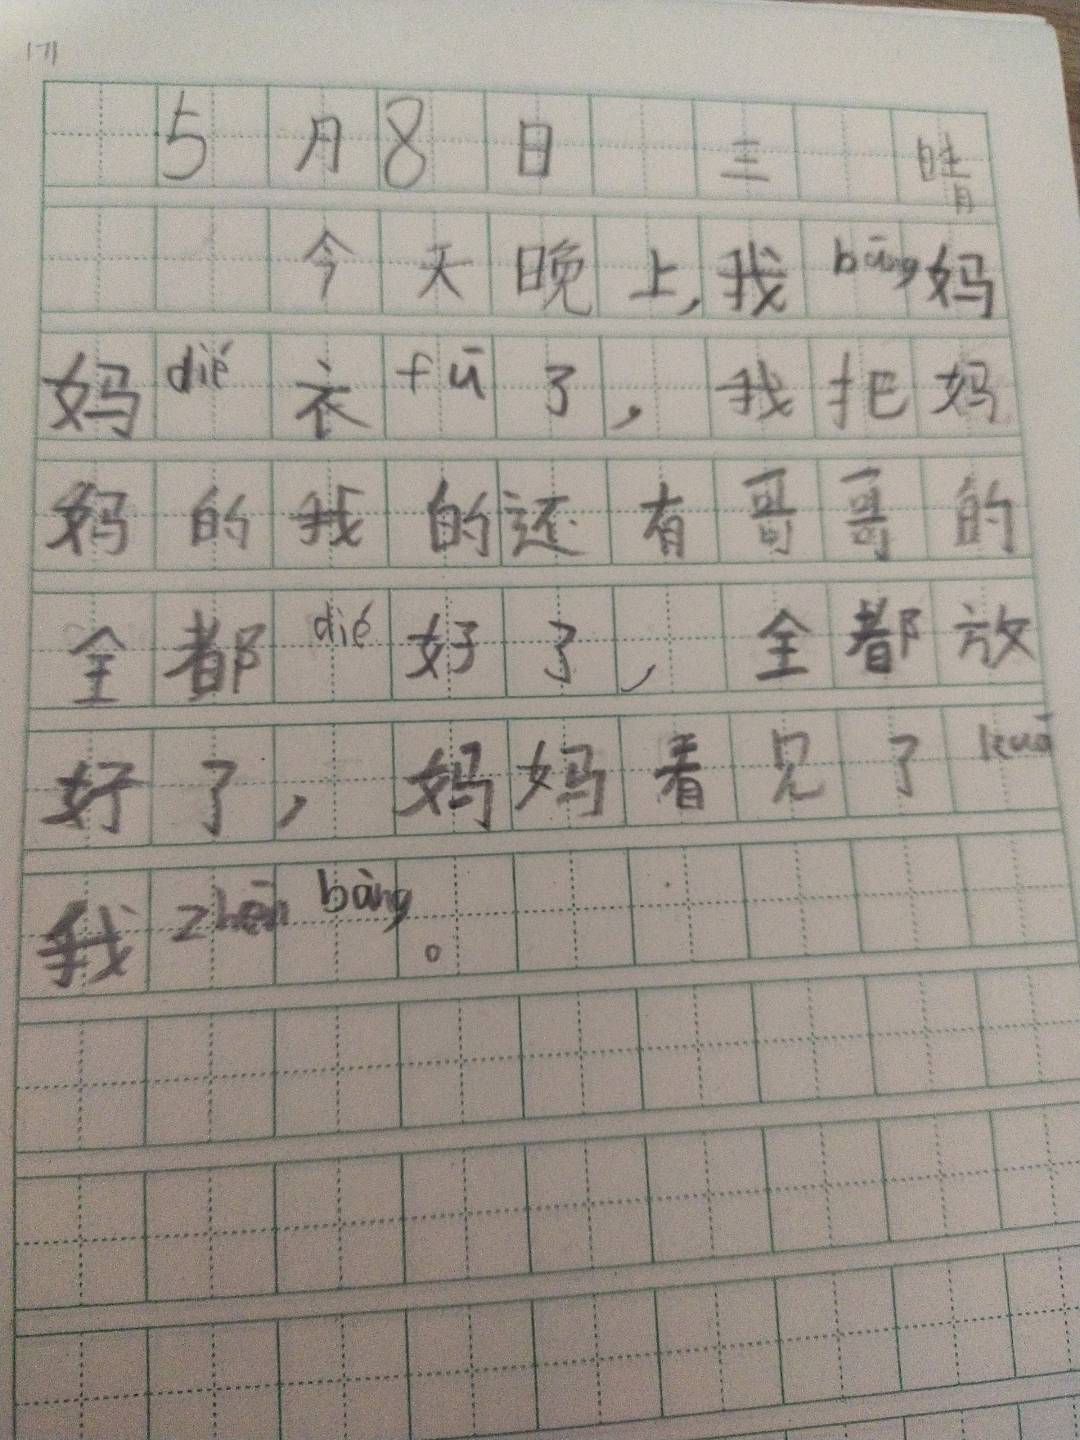 5月8日 三 晴
今天晚上,我bāng妈
妈dié衣fū了，我把妈
妈的我的还有哥哥的
全都dié好了，全都放
好了，妈妈看见了kuā
我zhēn bàng。